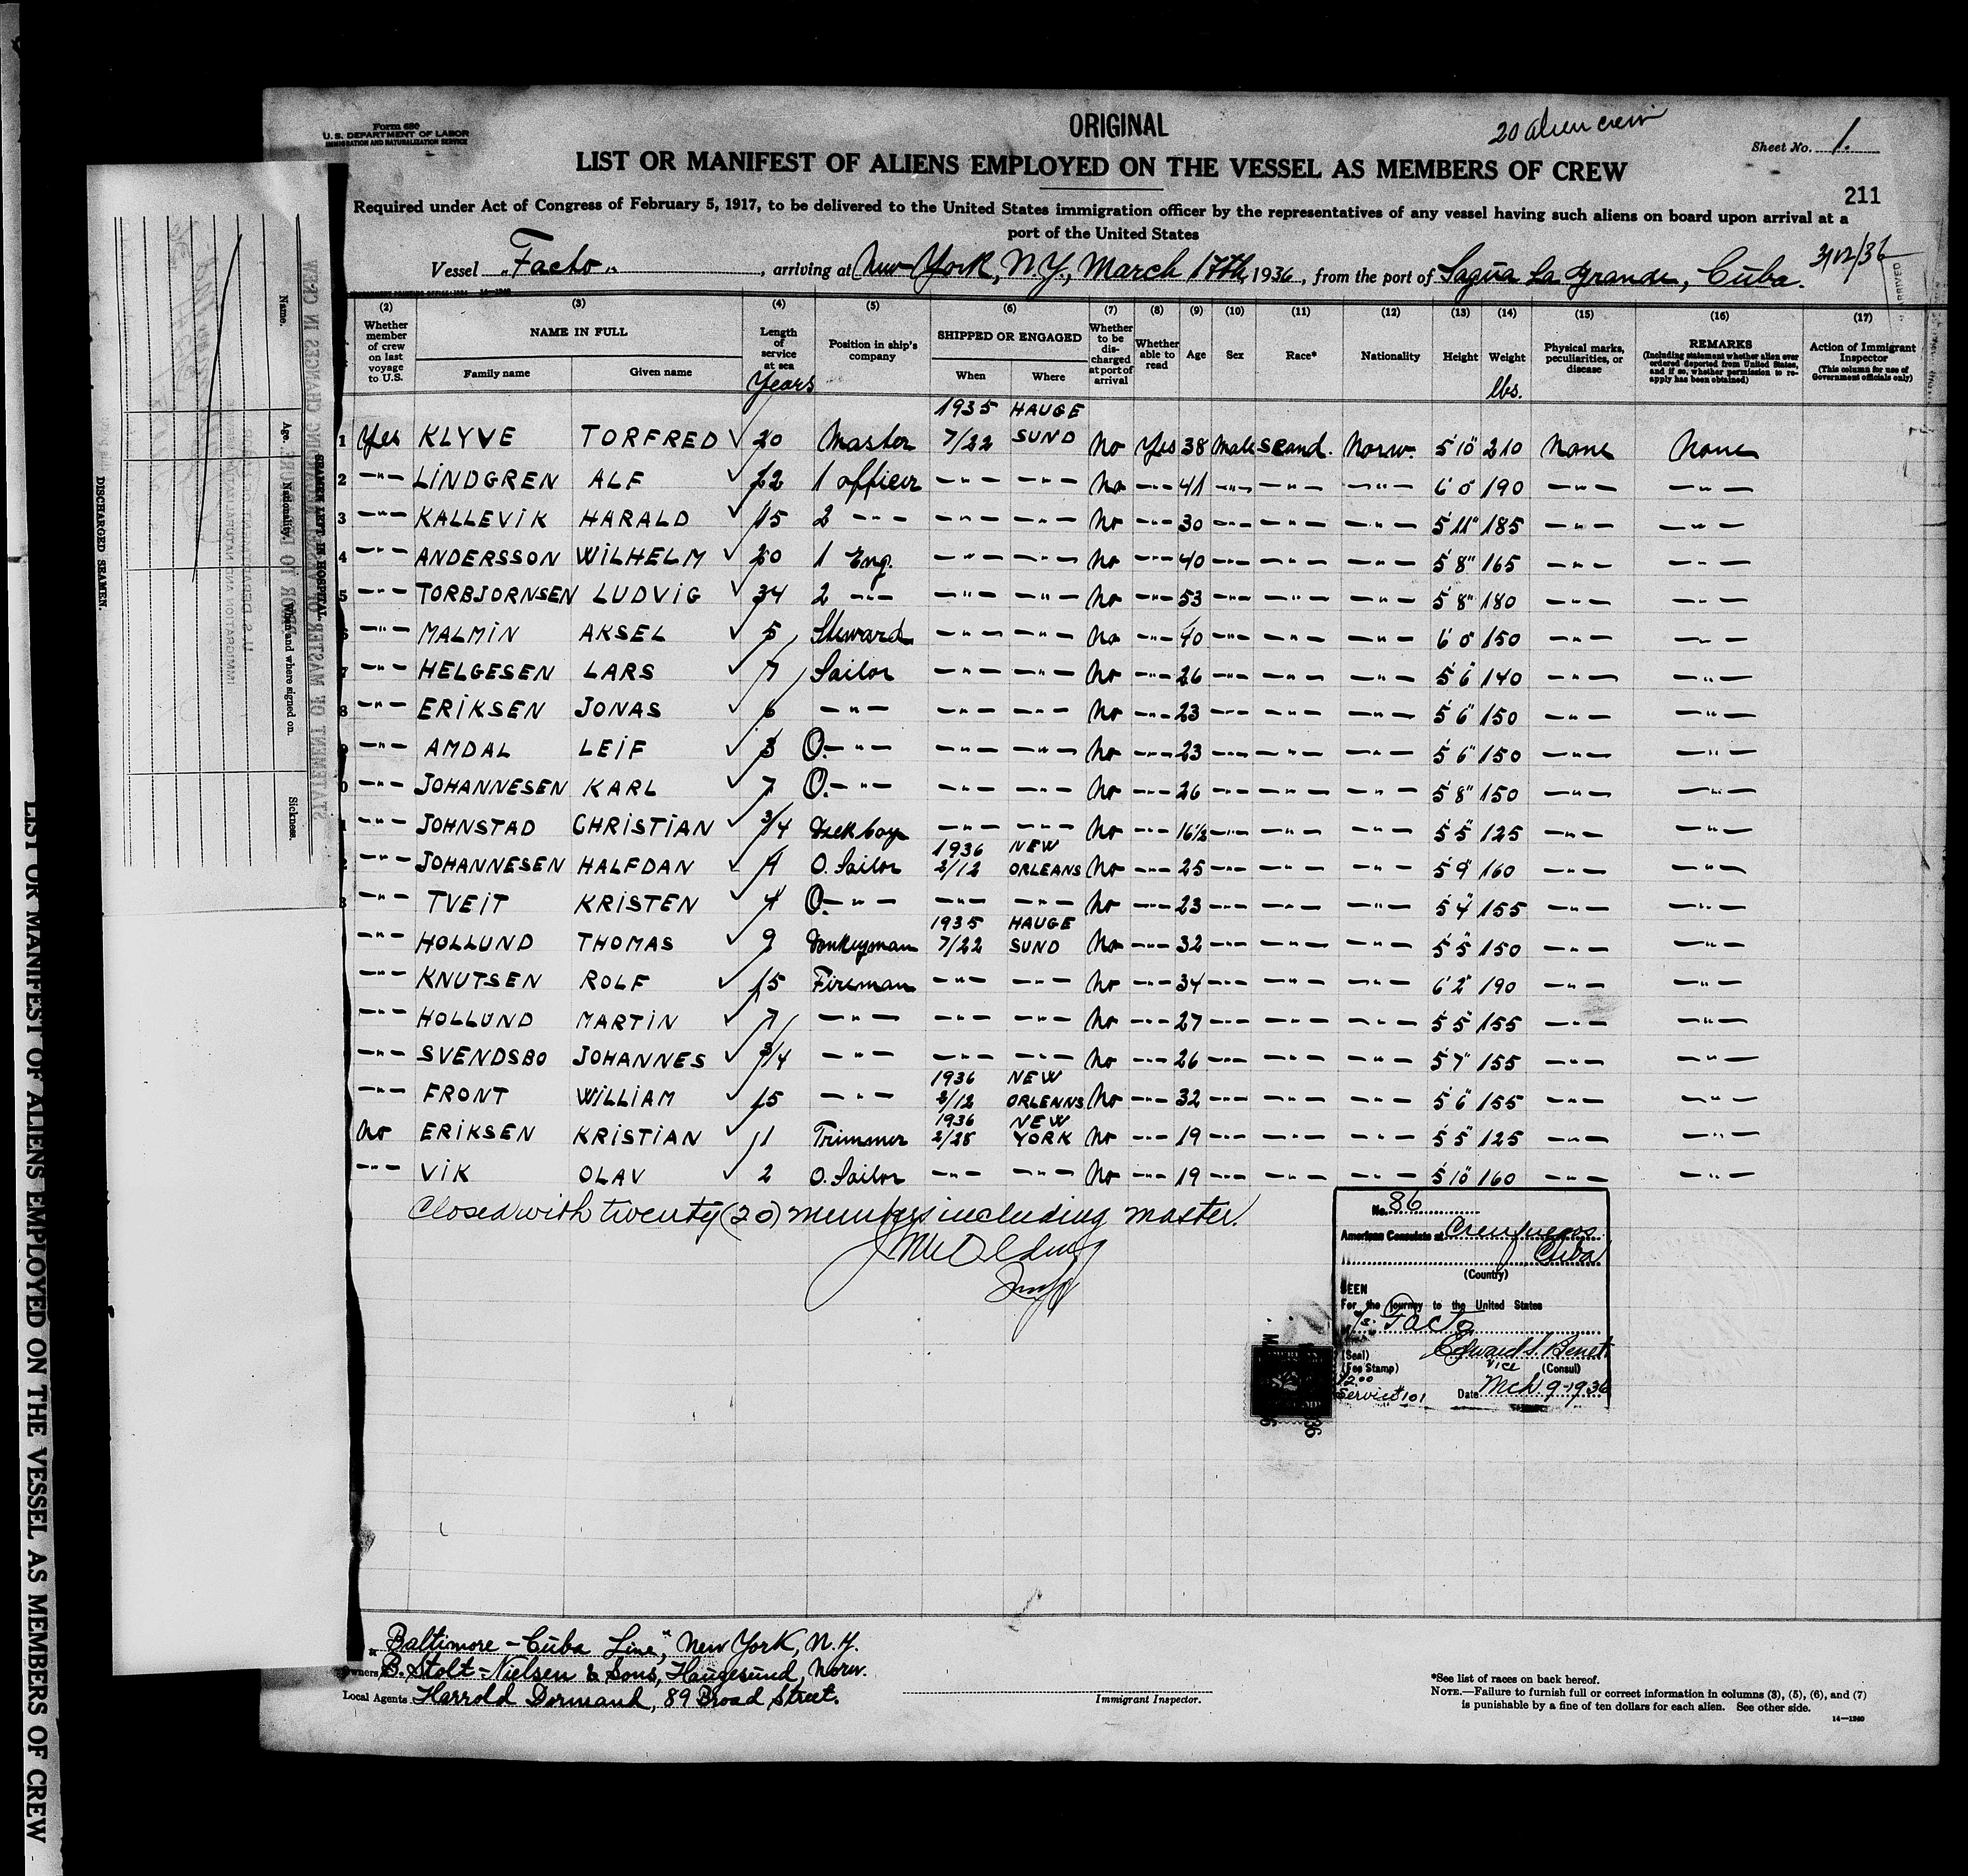 Form 680
U. S. DEPARTMENT OF LABOR
IMMIGRATION AND NATURALIZATION SERVICE
ORIGINAL
20 alien crew
Sheet No. 1.
LIST OR MANIFEST OF ALIENS EMPLOYED ON THE VESSEL AS MEMBERS OF CREW
211
Required under Act of Congress of February 5, 1917, to be delivered to the United States immigration officer by the representatives of any vessel having such aliens on board upon arrival at a
port of the United States
Vessel "Facto", arriving at New York, N.Y., March 17th, 1936, from the port of Sagua La Grande, Cuba.
(2) (3) (4) (5) (6) (7) (8) (9) (10) (11) (12) (13) (14) (15) (16) (17)
Whether member of crew on last voyage to U.S.
NAME IN FULL
Family name Given name
Length of service at sea
Years
Position in ship's company
SHIPPED OR ENGAGED
When Where
Whether to be discharged at port of arrival
Whether able to read
Age
Sex
Race*
Nationality
Height
Weight
lbs.
Physical marks, peculiarities, or disease
REMARKS
(Including statement whether alien ever ordered deported from United States, and if so, whether permission to reapply has been obtained)
Action of Immigrant Inspector
(This column for use of Government officials only)
1935 HAUGE
1 Yes KLYVE TORFRED 20 Master 7/22 SUND No Yes 38 Male Scand. Norw. 5'10" 210 None None
2 -"- LINDGREN ALF 22 1 officer -"- -"- No -"- 41 -"- -"- -"- 6'0" 190 -"- -"-
3 -"- KALLEVIK HARALD 15 2 -"- -"- -"- No -"- 30 -"- -"- -"- 5'11" 185 -"- -"-
4 -"- ANDERSSON WILHELM 20 1 Eng. -"- -"- No -"- 40 -"- -"- -"- 5'8" 165 -"- -"-
5 -"- TORBJORNSEN LUDVIG 34 2 -"- -"- -"- No -"- 53 -"- -"- -"- 5'8" 180 -"- -"-
6 -"- MALMIN AKSEL 5 Steward -"- -"- No -"- 40 -"- -"- -"- 6'0" 150 -"- -"-
7 -"- HELGESEN LARS 7 Sailor -"- -"- No -"- 26 -"- -"- -"- 5'6" 140 -"- -"-
8 -"- ERIKSEN JONAS 6 -"- -"- -"- No -"- 23 -"- -"- -"- 5'6" 150 -"- -"-
9 -"- AMDAL LEIF 3 O. -"- -"- -"- No -"- 23 -"- -"- -"- 5'6" 150 -"- -"-
0 -"- JOHANNESEN KARL 7 O. -"- -"- -"- No -"- 26 -"- -"- -"- 5'8" 150 -"- -"-
1 -"- JOHNSTAD CHRISTIAN 3/4 Dekboy -"- -"- No -"- 16 1/2 -"- -"- -"- 5'5" 125 -"- -"-
1936 NEW
2 -"- JOHANNESEN HALFDAN 4 O. Sailor 2/12 ORLEANS No -"- 25 -"- -"- -"- 5'9" 160 -"- -"-
3 -"- TVEIT KRISTEN 4 O. -"- -"- -"- No -"- 23 -"- -"- -"- 5'4" 155 -"- -"-
1935 HAUGE
-"- HOLLUND THOMAS 9 Donkeyman 7/22 SUND No -"- 32 -"- -"- -"- 5'5" 150 -"- -"-
-"- KNUTSEN ROLF 15 Fireman -"- -"- No -"- 34 -"- -"- -"- 6'2" 190 -"- -"-
-"- HOLLUND MARTIN 7 -"- -"- -"- No -"- 27 -"- -"- -"- 5'5" 155 -"- -"-
-"- SVENDSBO JOHANNES 3/4 -"- -"- -"- No -"- 26 -"- -"- -"- 5'7" 155 -"- -"-
1936 NEW
-"- FRONT WILLIAM 15 -"- 2/12 ORLEANS No -"- 32 -"- -"- -"- 5'6" 155 -"- -"-
1936 NEW
No ERIKSEN KRISTIAN 11 Trimmer 2/28 YORK No -"- 19 -"- -"- -"- 5'5" 125 -"- -"-
-"- VIK OLAV 2 O. Sailor -"- -"- No -"- 19 -"- -"- -"- 5'10" 160 -"- -"-
Closed with twenty (20) members including master.
No. 86
American Consulate at Cienfuegos
Cuba
(Country)
SEEN
For the journey to the United States
Facto
(Seal) Edward S. Benet
(Fee Stamp) Vice (Consul)
$2.00
Service 101 Date Mch. 9-1936
Baltimore-Cuba Line, New York, N.Y.
Owners B. Stolt-Nielsen & Sons, Haugesund, Norw.
Local Agents Harrold Dormand, 89 Broad Street.
Immigrant Inspector.
*See list of races on back hereof.
NOTE.—Failure to furnish full or correct information in columns (3), (5), (6), and (7)
is punishable by a fine of ten dollars for each alien. See other side.
14—1240
Name.
Age.
Nationality.
When and where signed on.
Sickness.
SEAMEN LEFT IN HOSPITAL.
DISCHARGED SEAMEN.
STATEMENT OF MASTER OF VESSEL REGARDING CHANGES IN CREW
LIST OR MANIFEST OF ALIENS EMPLOYED ON THE VESSEL AS MEMBERS OF CREW